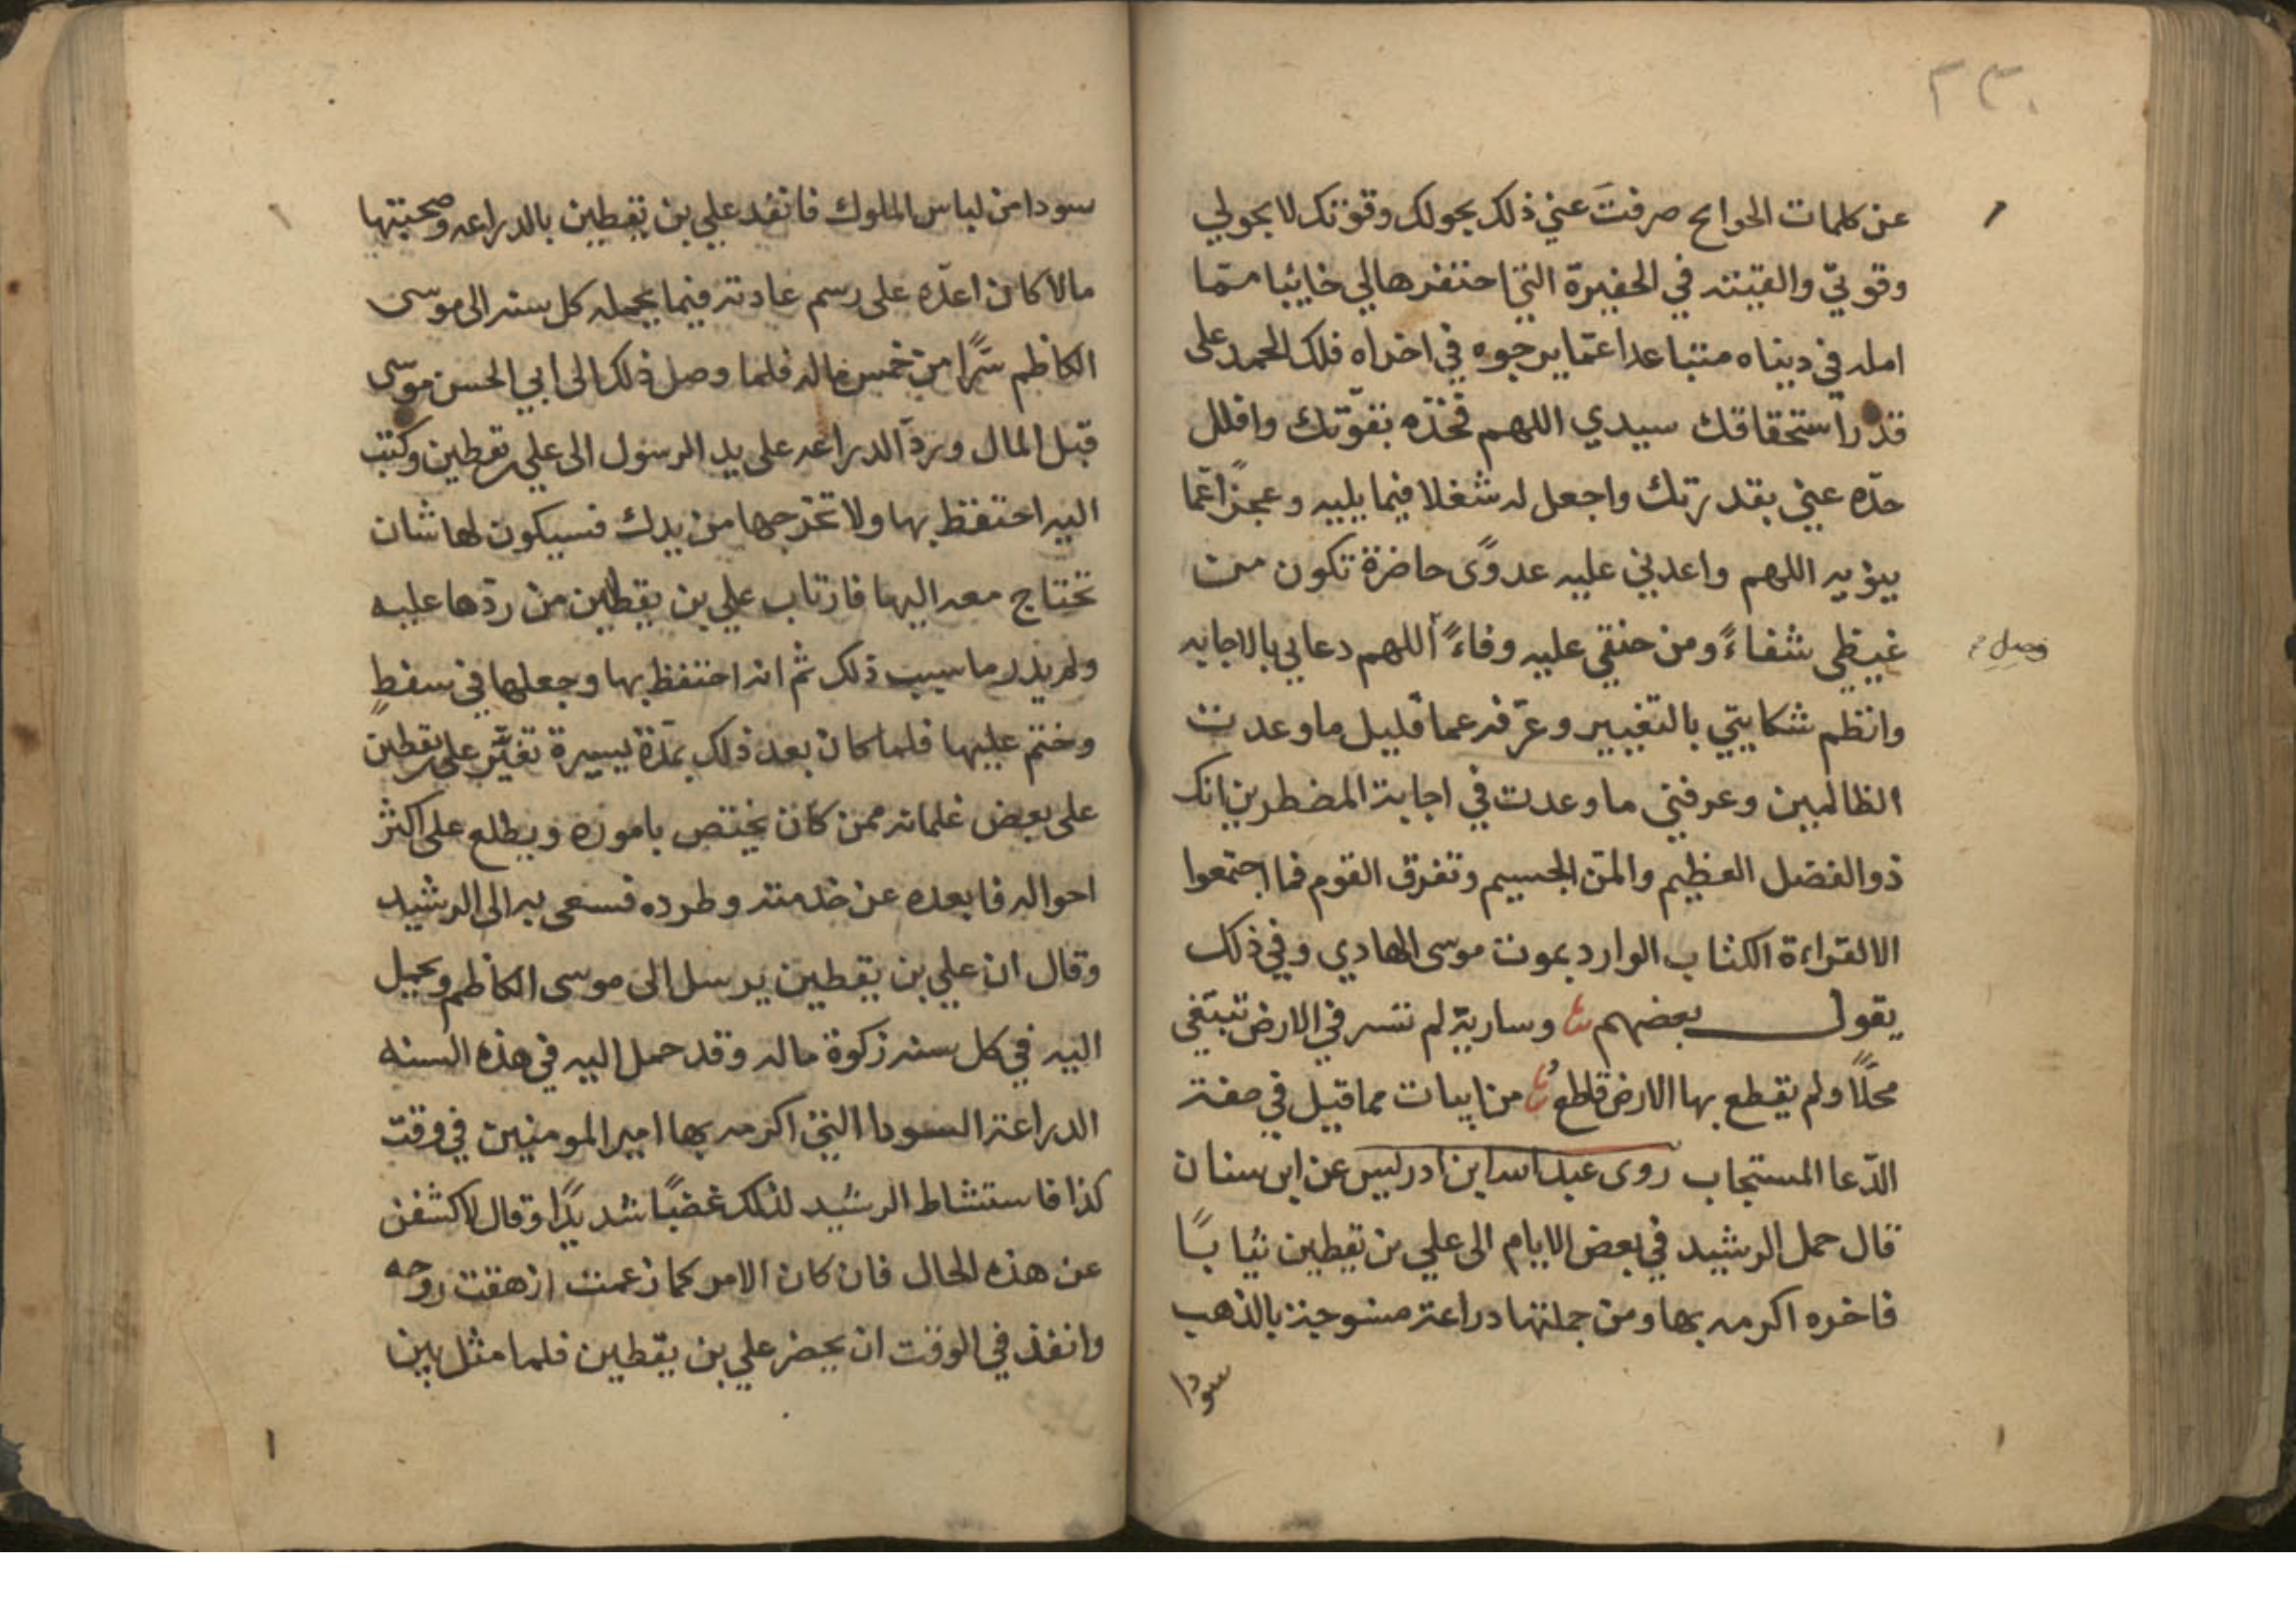 ٢٣٠
عن كلمات الحوائج صرفتَ عني ذلك بحولك وقوتك لا بحولي
وقوتي والقيته في الحفيرة التي احتفرها لي خائبا ممّا
امله في دنياه متباعدا عمّا يرجوه في اخراه فلك الحمد على
قدر استحقاقك سيدي اللهم فخذه بقوّتك وافلل
حدّه عني بقدرتك واجعل له شغلا فيما يليه وعجزًا عمّا
ينويه اللهم واعدني عليه عدوًى حاضرة تكون من
غيظي شفاءً ومن حنقي عليه وفاءً اللهم دعائي بالاجابه
وصل
وانظم شكايتي بالتغيير وعرّفه عما قليل ما وعدت
الظالمين وعرفني ما وعدت في اجابة المضطرين انك
ذوالفضل العظيم والمن الجسيم وتفرق القوم فما اجتمعوا
الا لقراءة الكتاب الوارد بموت موسى الهادي وفي ذلك
يقول بعضهم وسارية لم تسر في الارض تبتغي
محلًا ولم يقطع بها الارض قاطع من ابيات مما قيل في صفة
الدّعا المستجاب روى عبد الله ابن ادريس عن ابن سنان
قال حمل الرشيد في بعض الايام الى علي بن يقطين ثيابًا
فاخره اكرمه بها ومن جملتها دراعة منسوجة بالذهب
سودا
سودا من لباس الملوك فانفد علي بن يقطين بالدراعه وصحبتها
مالا كان اعدّه على رسم عادته فيما يحمله كل سنه الى موسى
الكاظم سرًا من خمس ماله فلما وصل ذلك الى ابي الحسن موسى
قبل المال وردّ الدراعه على يد الرسول الى علي بن يقطين وكتب
اليه احتفظ بها ولا تخرجها من يدك فسيكون لها شان
تحتاج معه اليها فارتاب علي بن يقطين من ردّها عليه
ولم يدر ما سبب ذلك ثم انه احتفظ بها وجعلها في سفطٍ
وختم عليها فلما كان بعد ذلك بمدّة يسيرة تغيّر علي بن يقطين
على بعض غلمانه ممن كان يختص باموره ويطلع على اكثر
احواله فابعده عن خدمته وطرده فسعى به الى الرشيد
وقال ان علي بن يقطين يرسل الى موسى الكاظم ويحمل
اليه في كل سنه زكوة ماله وقد حمل اليه في هذه السنه
الدراعة السودا التي اكرمه بها امير المومنين في وقت
كذا فاستشاط الرشيد لذلك غضبًا شديدًا وقال لاكشفن
عن هذه الحال فان كان الامر كما زعمت ازهقت روحه
وانفذ في الوقت ان يحضر علي بن يقطين فلما مثل بين